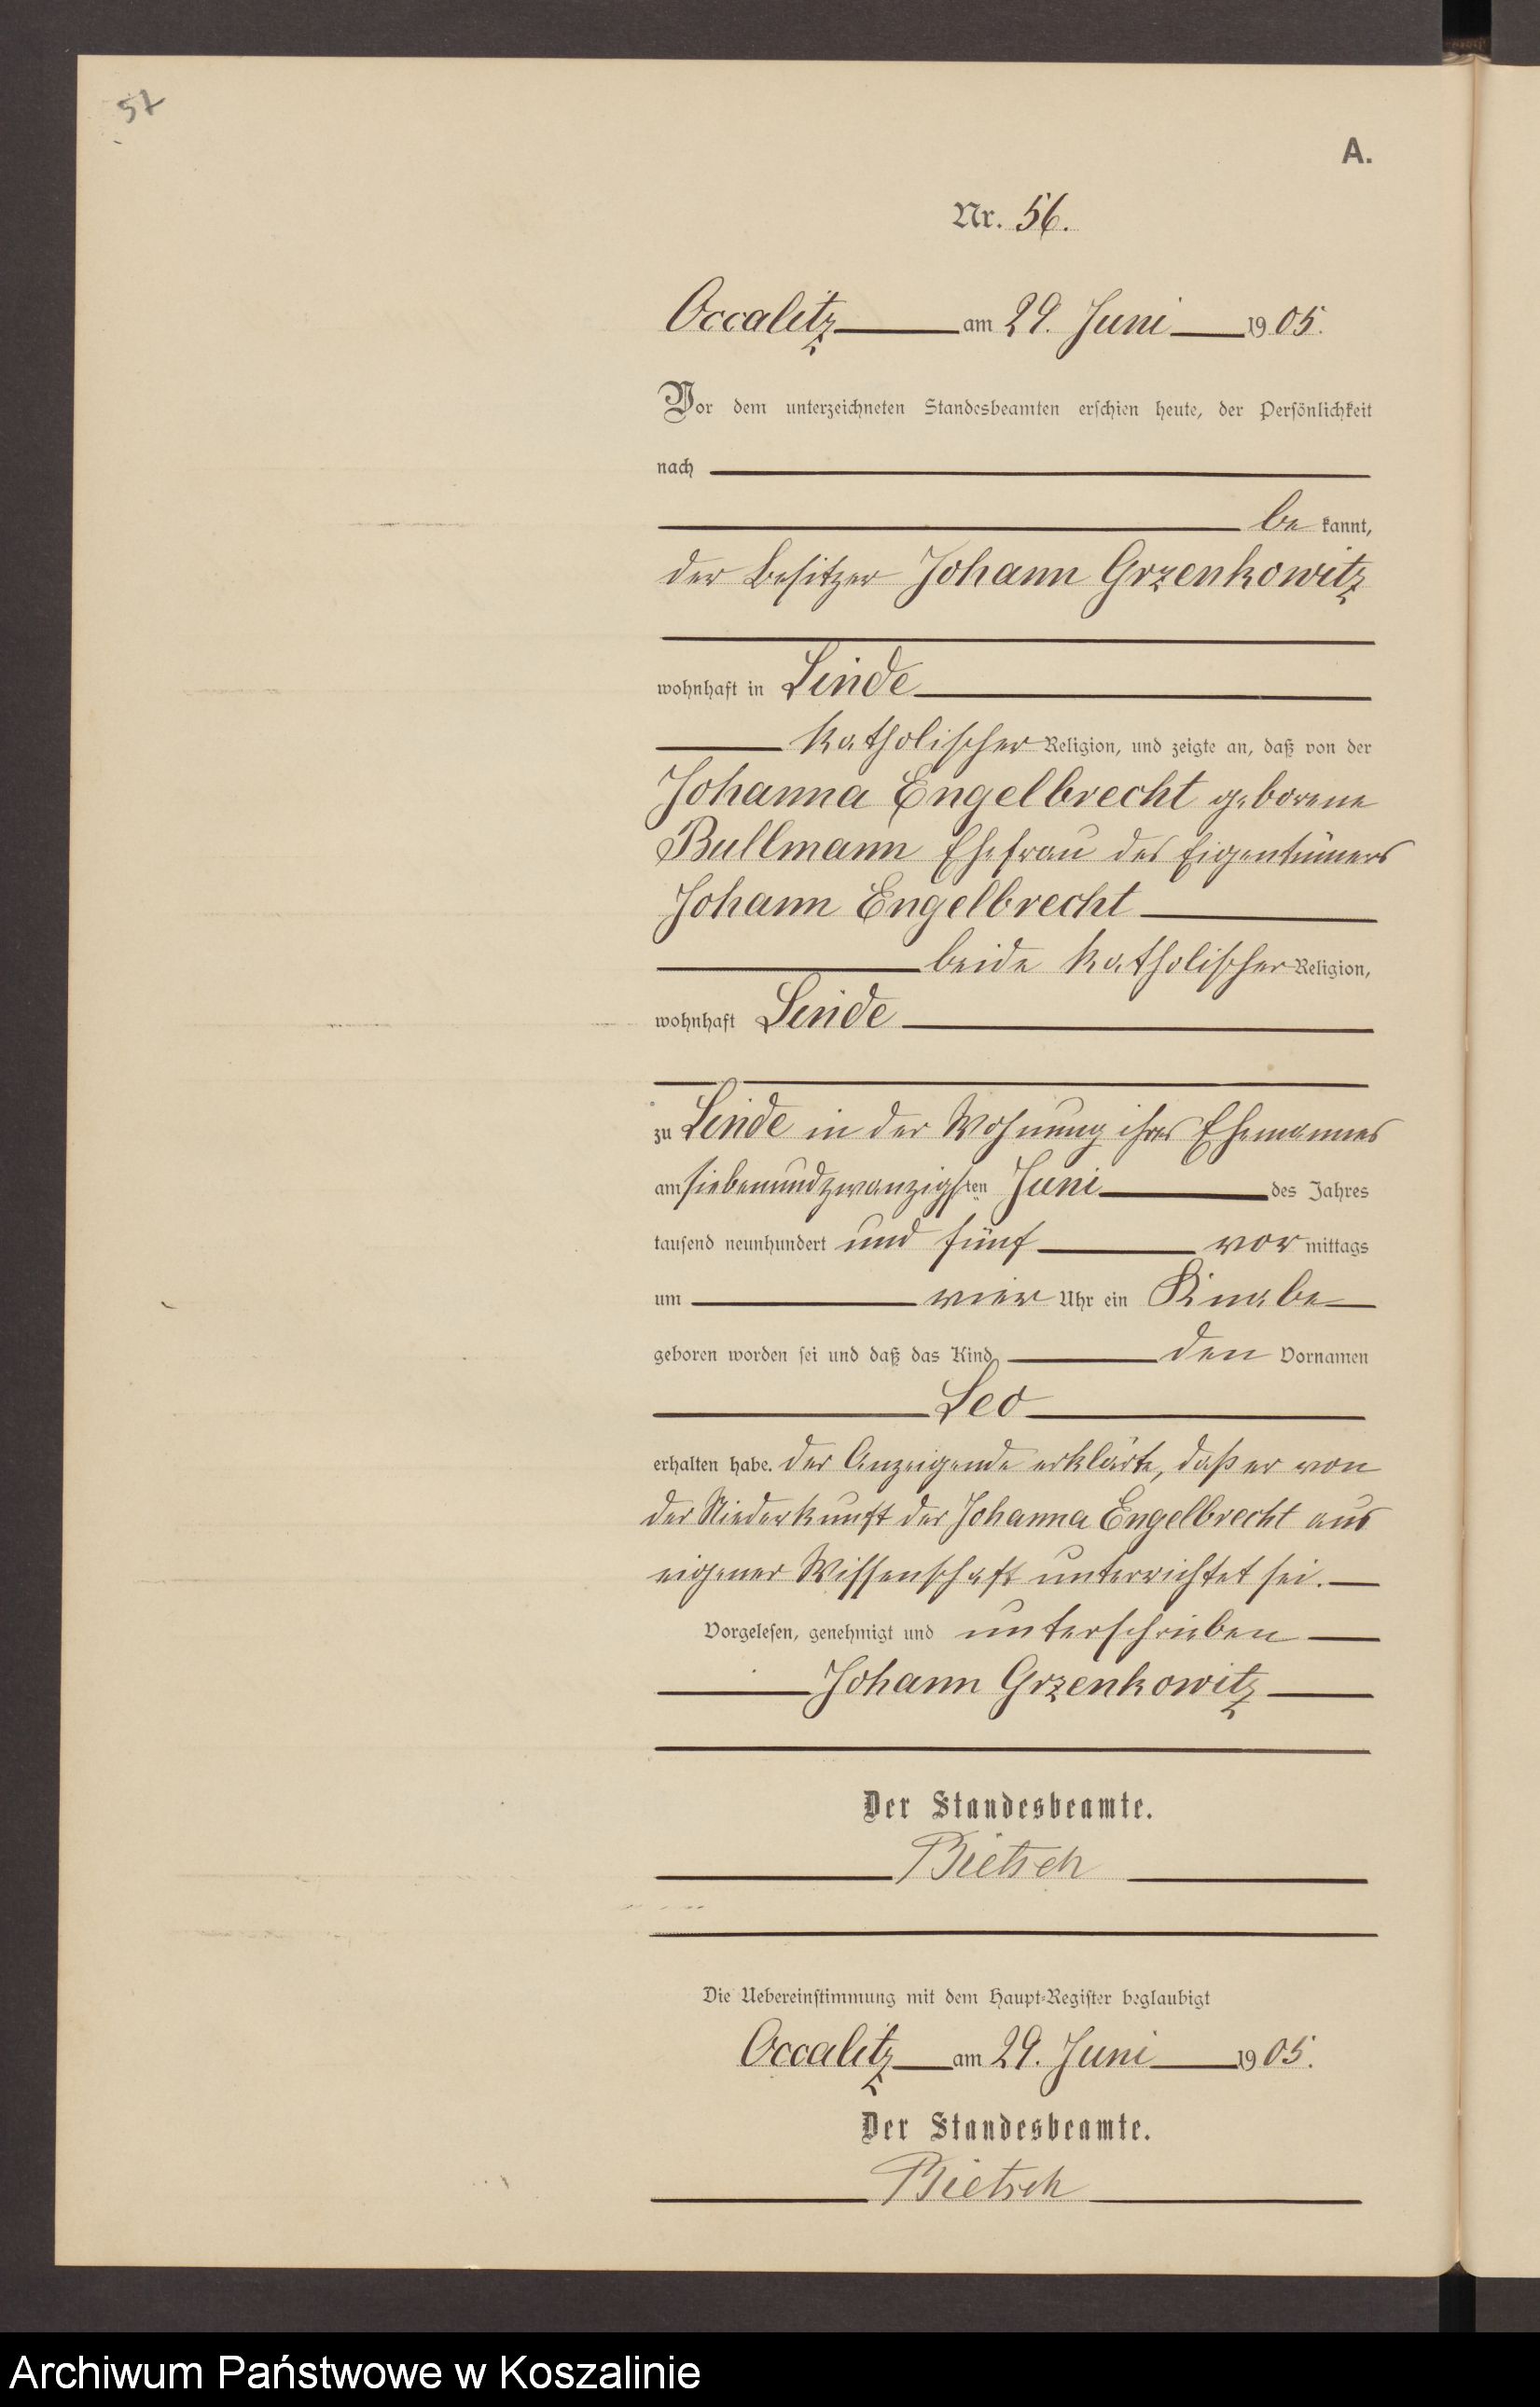 57
A.
Nr. 56.
Occalitz am 29. Juni 1905.
Vor dem unterzeichneten Standesbeamten erschien heute, der Persönlichkeit
nach
be kannt,
der Besitzer Johann Grzenkowitz
wohnhaft in Linde
katholischer Religion, und zeigte an, daß von der
Johanna Engelbrecht geborene
Bullmann Ehefrau des Eigentümers
Johann Engelbrecht
beide katholischer Religion,
wohnhaft Linde
zu Linde in der Wohnung ihres Ehemannes
am siebenundzwanzigsten Juni des Jahres
tausend neunhundert und fünf vor mittags
um vier Uhr ein Knabe
geboren worden sei und daß das Kind den Vornamen
Leo
erhalten habe. Der Anzeigende erklärte, daß er von
der Niederkunft der Johanna Engelbrecht aus
eigener Wissenschaft unterrichtet sei.
Vorgelesen, genehmigt und unterschrieben
Johann Grzenkowitz
Der Standesbeamte.
Bietsch
Die Uebereinstimmung mit dem Haupt-Register beglaubigt
Occalitz am 29. Juni 1905.
Der Standesbeamte.
Bietsch
Archiwum Państwowe w Koszalinie